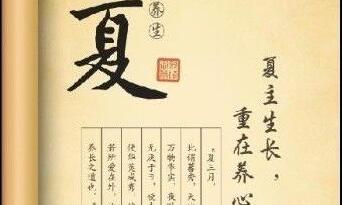 养生
夏
夏主生长，
重在养心
夏三月，
此谓蕃秀，天
万物华实，夜
无厌于日，使
使华英成秀，
若所爱在外，
养长之道也。